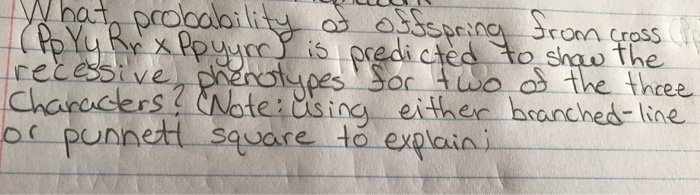 What probability of offspring from cross (P
(PpYyRr x Ppyyrr) is predicted to show the
recessive phenotypes for two of the three
Characters? (Note: using either branched-line
or punnett square to explain;